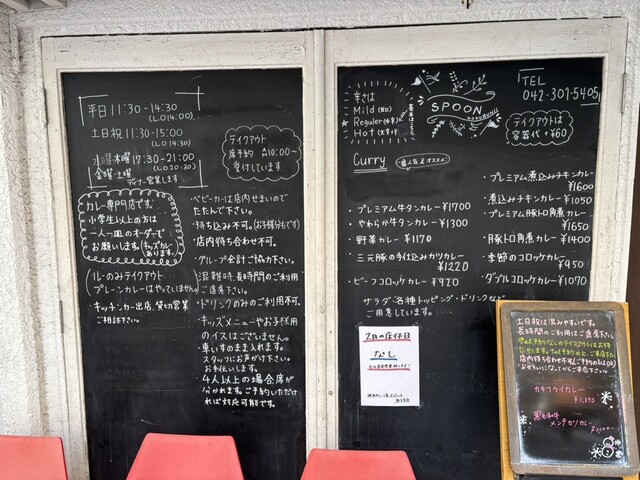 平日 11:30-14:30
(L.O 14:00)
土日祝 11:30-15:00
(L.O 14:30)
水曜・木曜 17:30-21:00
金曜・土曜 (L.O 20:30)
ディナー営業します
テイクアウト
席予約 AM10:00〜
受付しています
カレー専門店です。
小学生以上の方は
一人一皿のオーダーで
お願いします。(キッズカレー
あります。)
(ルーのみテイクアウト
プレーンカレーはやっていません。)
・キッチンカー出店、貸切営業
ご相談下さい。
・ベビーカーは店内せまいので
たたんで下さい。
・持ち込み不可。(お子様分もです)
・店内待ち合わせ不可。
・グループ会計ご協力下さい。
・混雑時、長時間のご利用
ご遠慮下さい。
・ドリンクのみのご利用不可。
・キッズメニューやお子様用
のイスはございません。
車いすのまま入れます。
スタッフにお声がけ下さい。
お手伝いします。
4人以上の場合席が
分かれます。ご予約いただけ
れば対応可能です。
辛さは
Mild (甘口)
Reguler (中辛)
Hot (大辛)
SPOON
KOKUBUNJI
TEL
042-301-5405
テイクアウトは
容器代+¥60
Curry
・プレミアム牛タンカレー ¥1700
・やわらか牛タンカレー ¥1300
・野菜カレー ¥1170
・三元豚の手仕込みカツカレー
¥1220
・ビーフコロッケカレー ¥920
・プレミアム煮込みチキンカレー
¥1600
・煮込みチキンカレー ¥1050
・プレミアム豚トロ角煮カレー
¥1650
・豚トロ角煮カレー ¥1400
・季節のコロッケカレー
¥950
・ダブルコロッケカレー ¥1070
サラダ・各種トッピング・ドリンクなど
ご用意しています。
2月の店休日
なし
土日祝は混みやすいです。
長時間のご利用はご遠慮下さい
カキフライカレー
黒毛和牛
メンチカツカレー